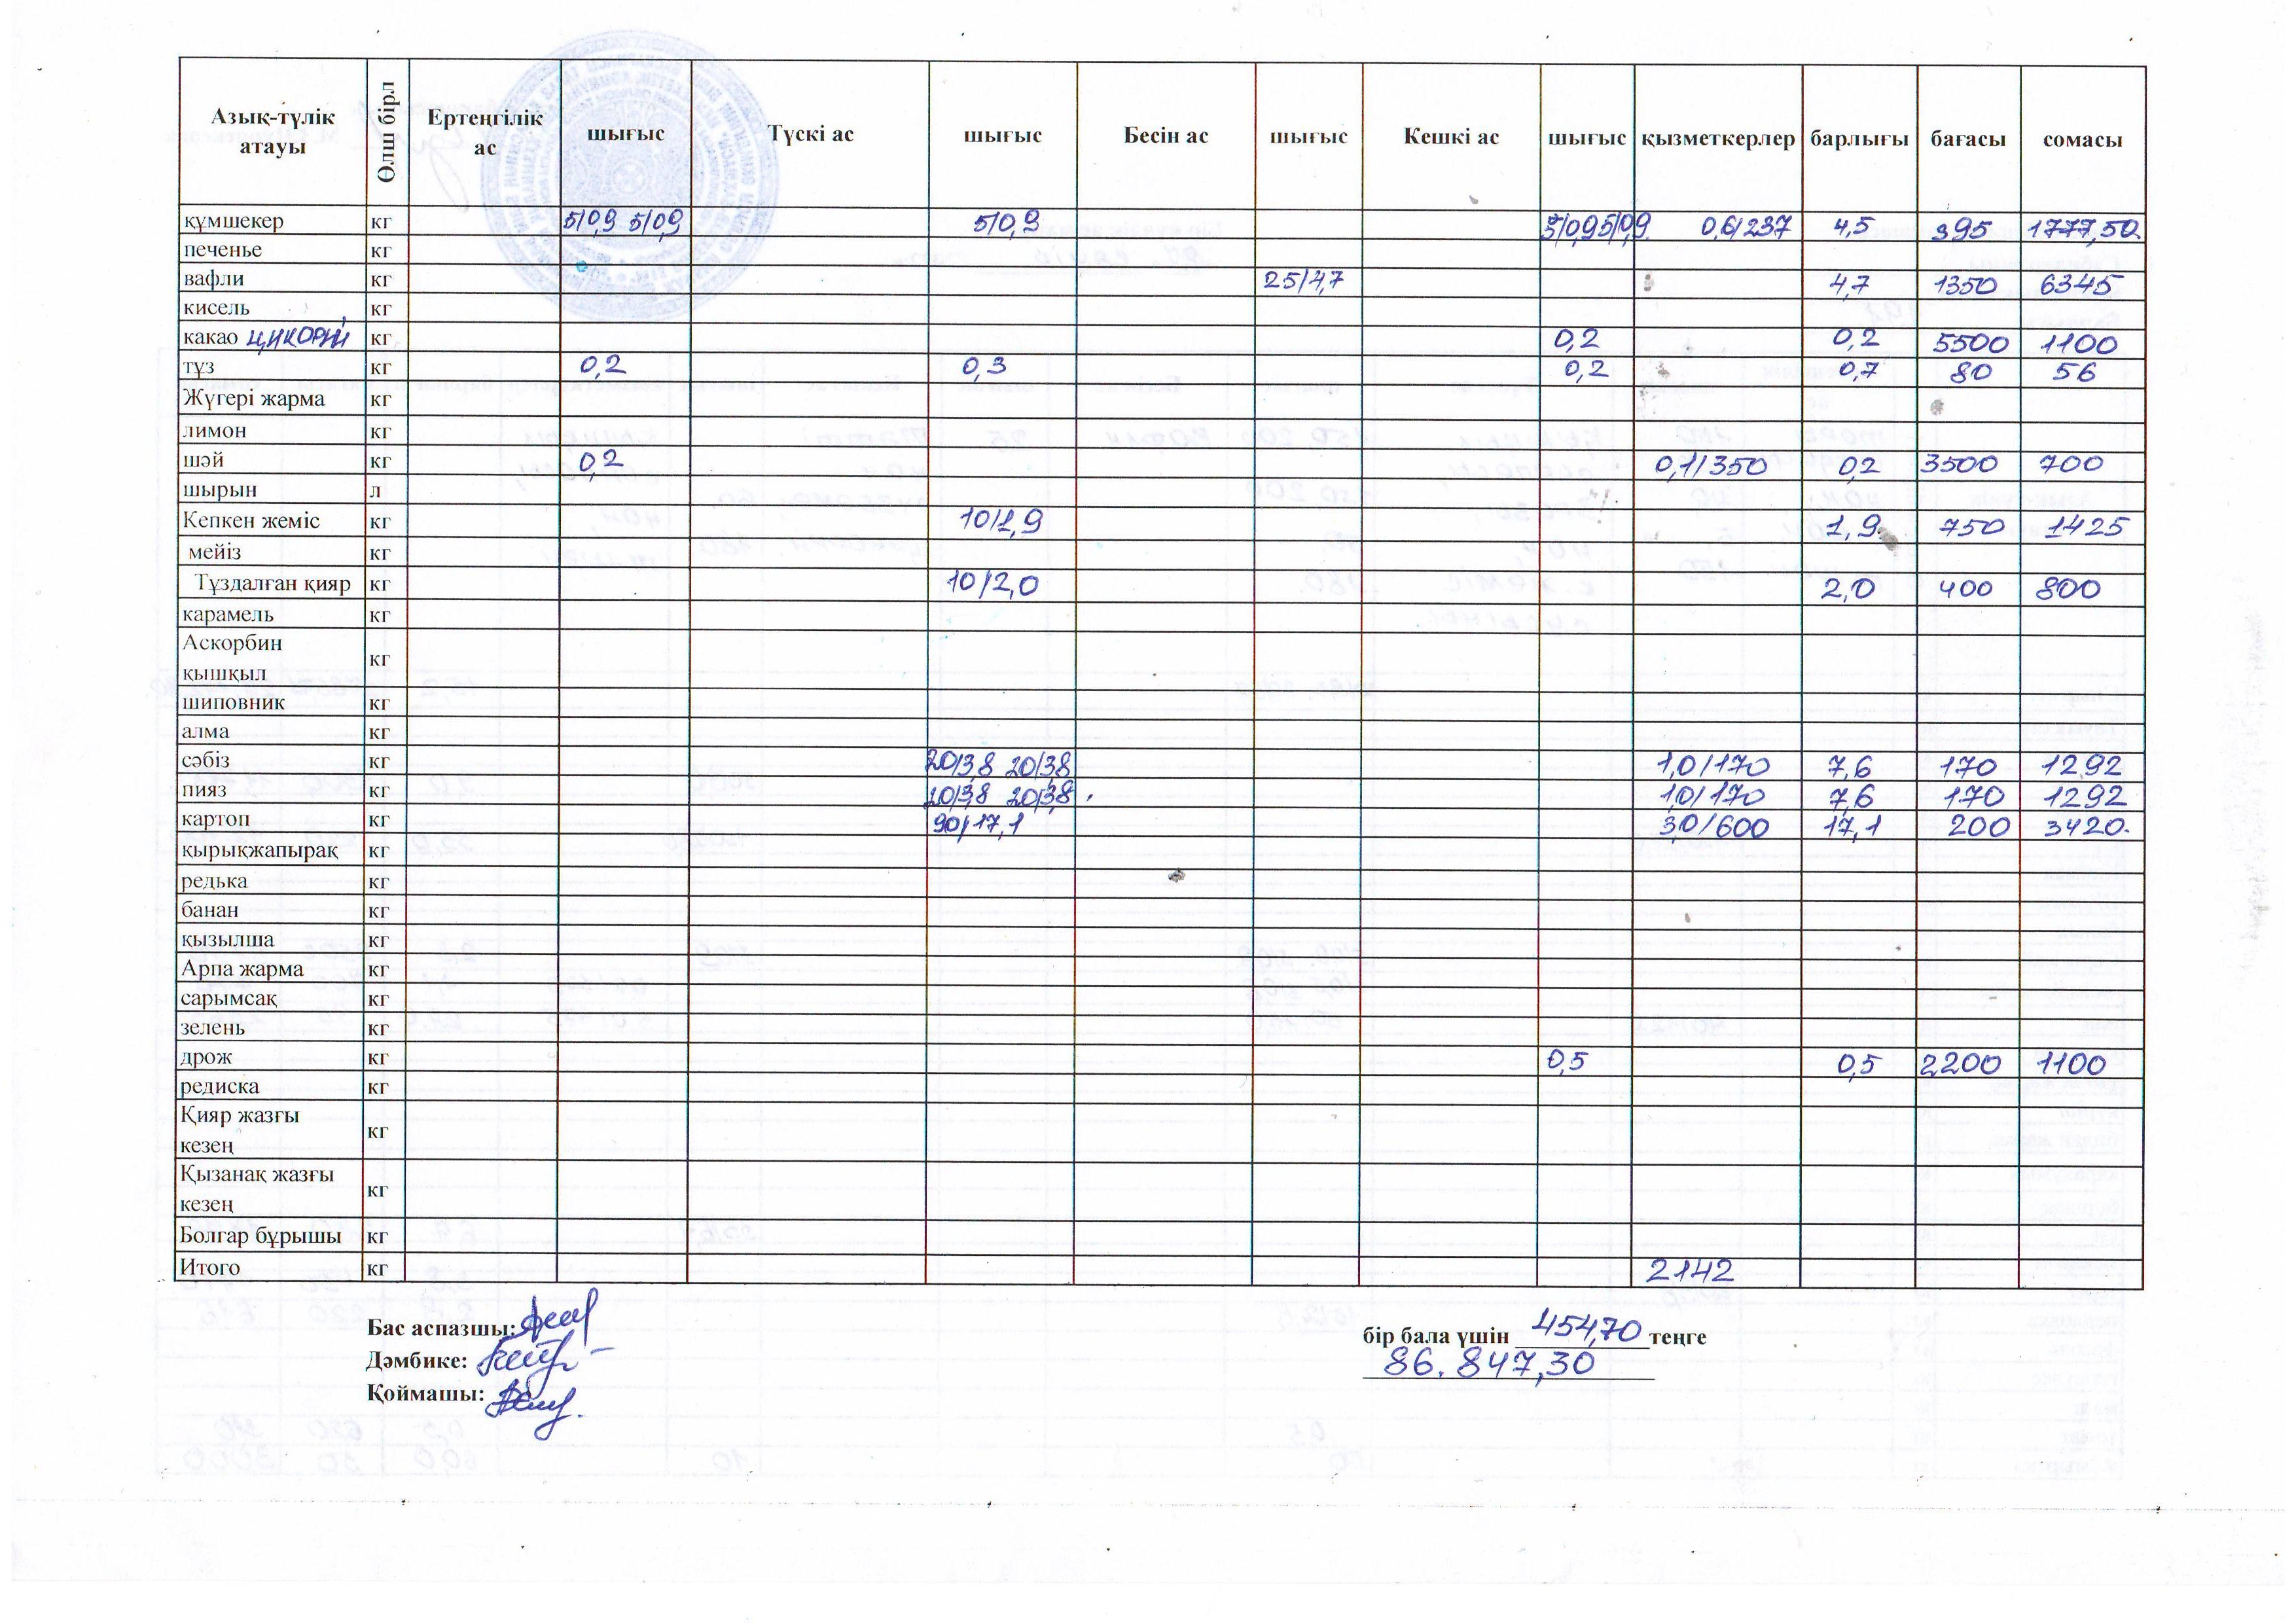 Азық-түлік атауы Өлш бірл Ертеңгілік ас шығыс Түскі ас шығыс Бесін ас шығыс Кешкі ас шығыс қызметкерлер барлығы бағасы сомасы
құмшекер кг 5/0,9 5/0,9 5/0,9 5/0,9 5/0,9 0,6/237 4,5 395 1777,50
печенье кг
вафли кг 25/4,7 4,7 1350 6345
кисель кг
какао цикорий кг 0,2 0,2 5500 1100
тұз кг 0,2 0,3 0,2 0,7 80 56
Жүгері жарма кг
лимон кг
шәй кг 0,2 0,1/350 0,2 3500 700
шырын л
Кепкен жеміс кг 10/1,9 1,9 750 1425
мейіз кг
Тұздалған қияр кг 10/2,0 2,0 400 800
карамель кг
Аскорбин қышқыл кг
шиповник кг
алма кг
сәбіз кг 20/3,8 20/3,8 1,0/170 7,6 170 1292
пияз кг 20/3,8 20/3,8 1,0/170 7,6 170 1292
картоп кг 90/17,1 3,0/600 17,1 200 3420
қырықжапырақ кг
редька кг
банан кг
қызылша кг
Арпа жарма кг
сарымсақ кг
зелень кг
дрож кг 0,5 0,5 2200 1100
редиска кг
Қияр жазғы кезең кг
Қызанақ жазғы кезең кг
Болгар бұрышы кг
Итого кг 2142
Бас аспазшы:
бір бала үшін 454,70 теңге
Дәмбике:
86.847,30
Қоймашы: